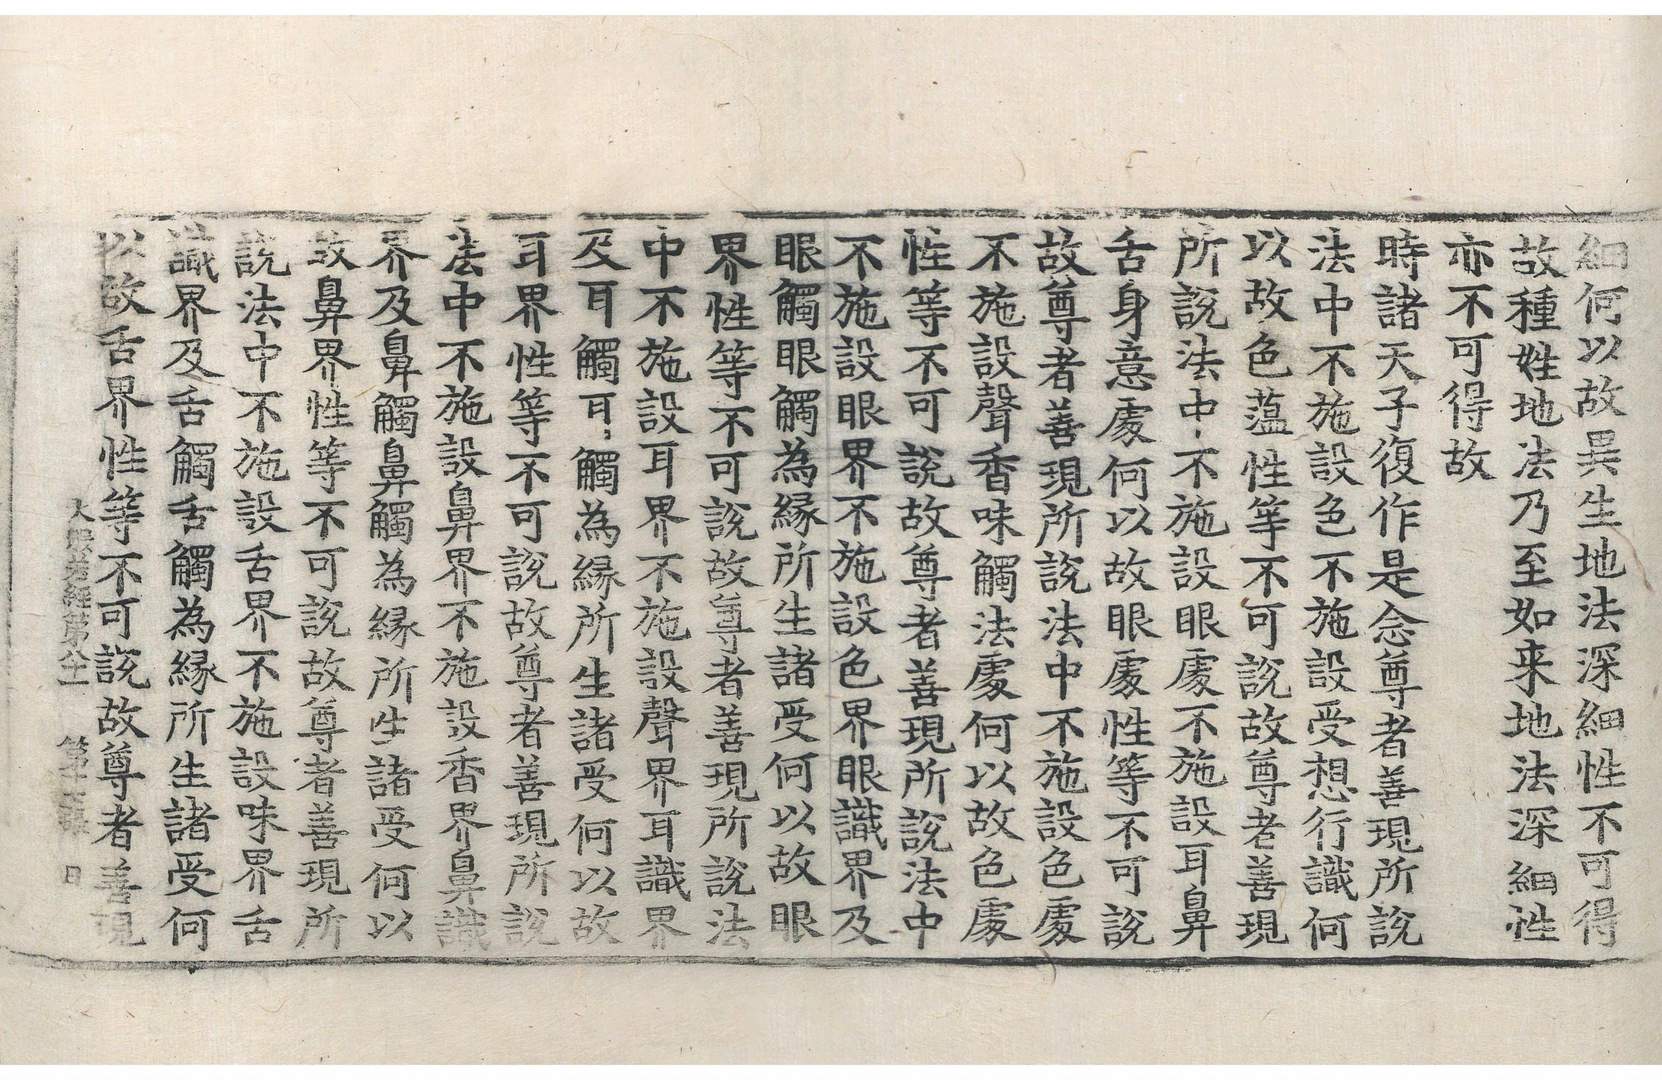 細何以故異生地法深細性不可得
故種姓地法乃至如来地法深細性
亦不可得故
時諸天子復作是念尊者善現所説
法中不施設色不施設受想行識何
以故色蕰性等不可説故尊者善現
所説法中不施設眼處不施設耳鼻
舌身意處何以故眼處性等不可説
故尊者善現所説法中不施設色處
不施設聲香味觸法處何以故色處
性等不可説故尊者善現所説法中
不施設眼界不施設色界眼識界及
眼觸眼觸為緣所生諸受何以故眼
界性等不可説故尊者善現所説法
中不施設耳界不施設聲界耳識界
及耳觸耳觸為緣所生諸受何以故
耳界性等不可説故尊者善現所説
法中不施設鼻界不施設香界鼻識
界及鼻觸鼻觸為緣所生諸受何以
故鼻界性等不可説故尊者善現所
説法中不施設舌界不施設味界舌
識界及舌觸舌觸為緣所生諸受何
以故舌界性等不可説故尊者善現
大般若經第八十一 第十 張 日